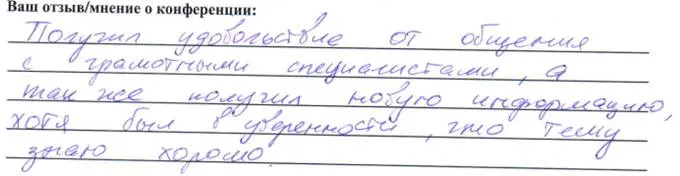 Ваш отзыв/мнение о конференции:
Получил удовольствие от общения
с грамотными специалистами, а
так же получил новую информацию,
хотя был в уверенности, что тему
знаю хорошо